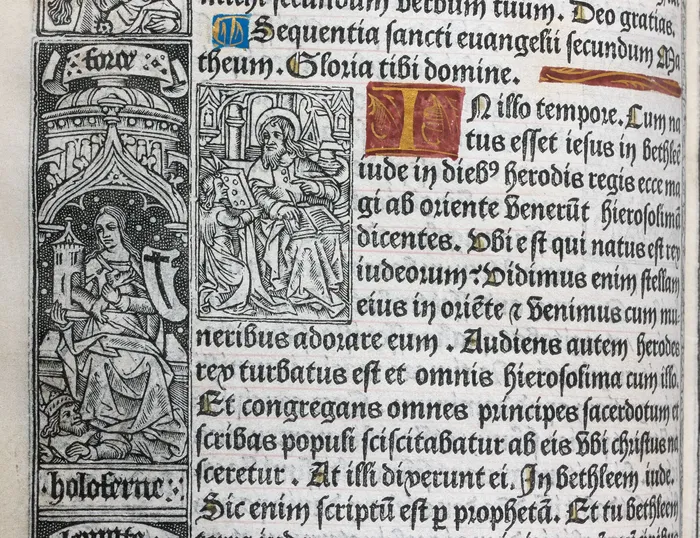 force
holoferne
michi secundum verbum tuum. Deo gratias.
Sequentia sancti euangelii secundum Ma
theum. Gloria tibi domine.
IN illo tempore. Cum na
tus esset iesus in bethleē
iude in diebꝰ herodis regis ecce ma
gi ab oriente venerūt hierosolimā
dicentes. Vbi est qui natus est rex
iudeorum? Vidimus enim stellam
eius in oriēte ⁊ venimus cum mu
neribus adorare eum . Audiens autem herodes
rex turbatus est et omnis hierosolima cum illo.
Et congregans omnes principes sacerdotum et
scribas populi sciscitabatur ab eis vbi christus na
sceretur . At illi dixerunt ei. In bethleem iude.
Sic enim scriptū est ꝑ prophetā. Et tu bethleem